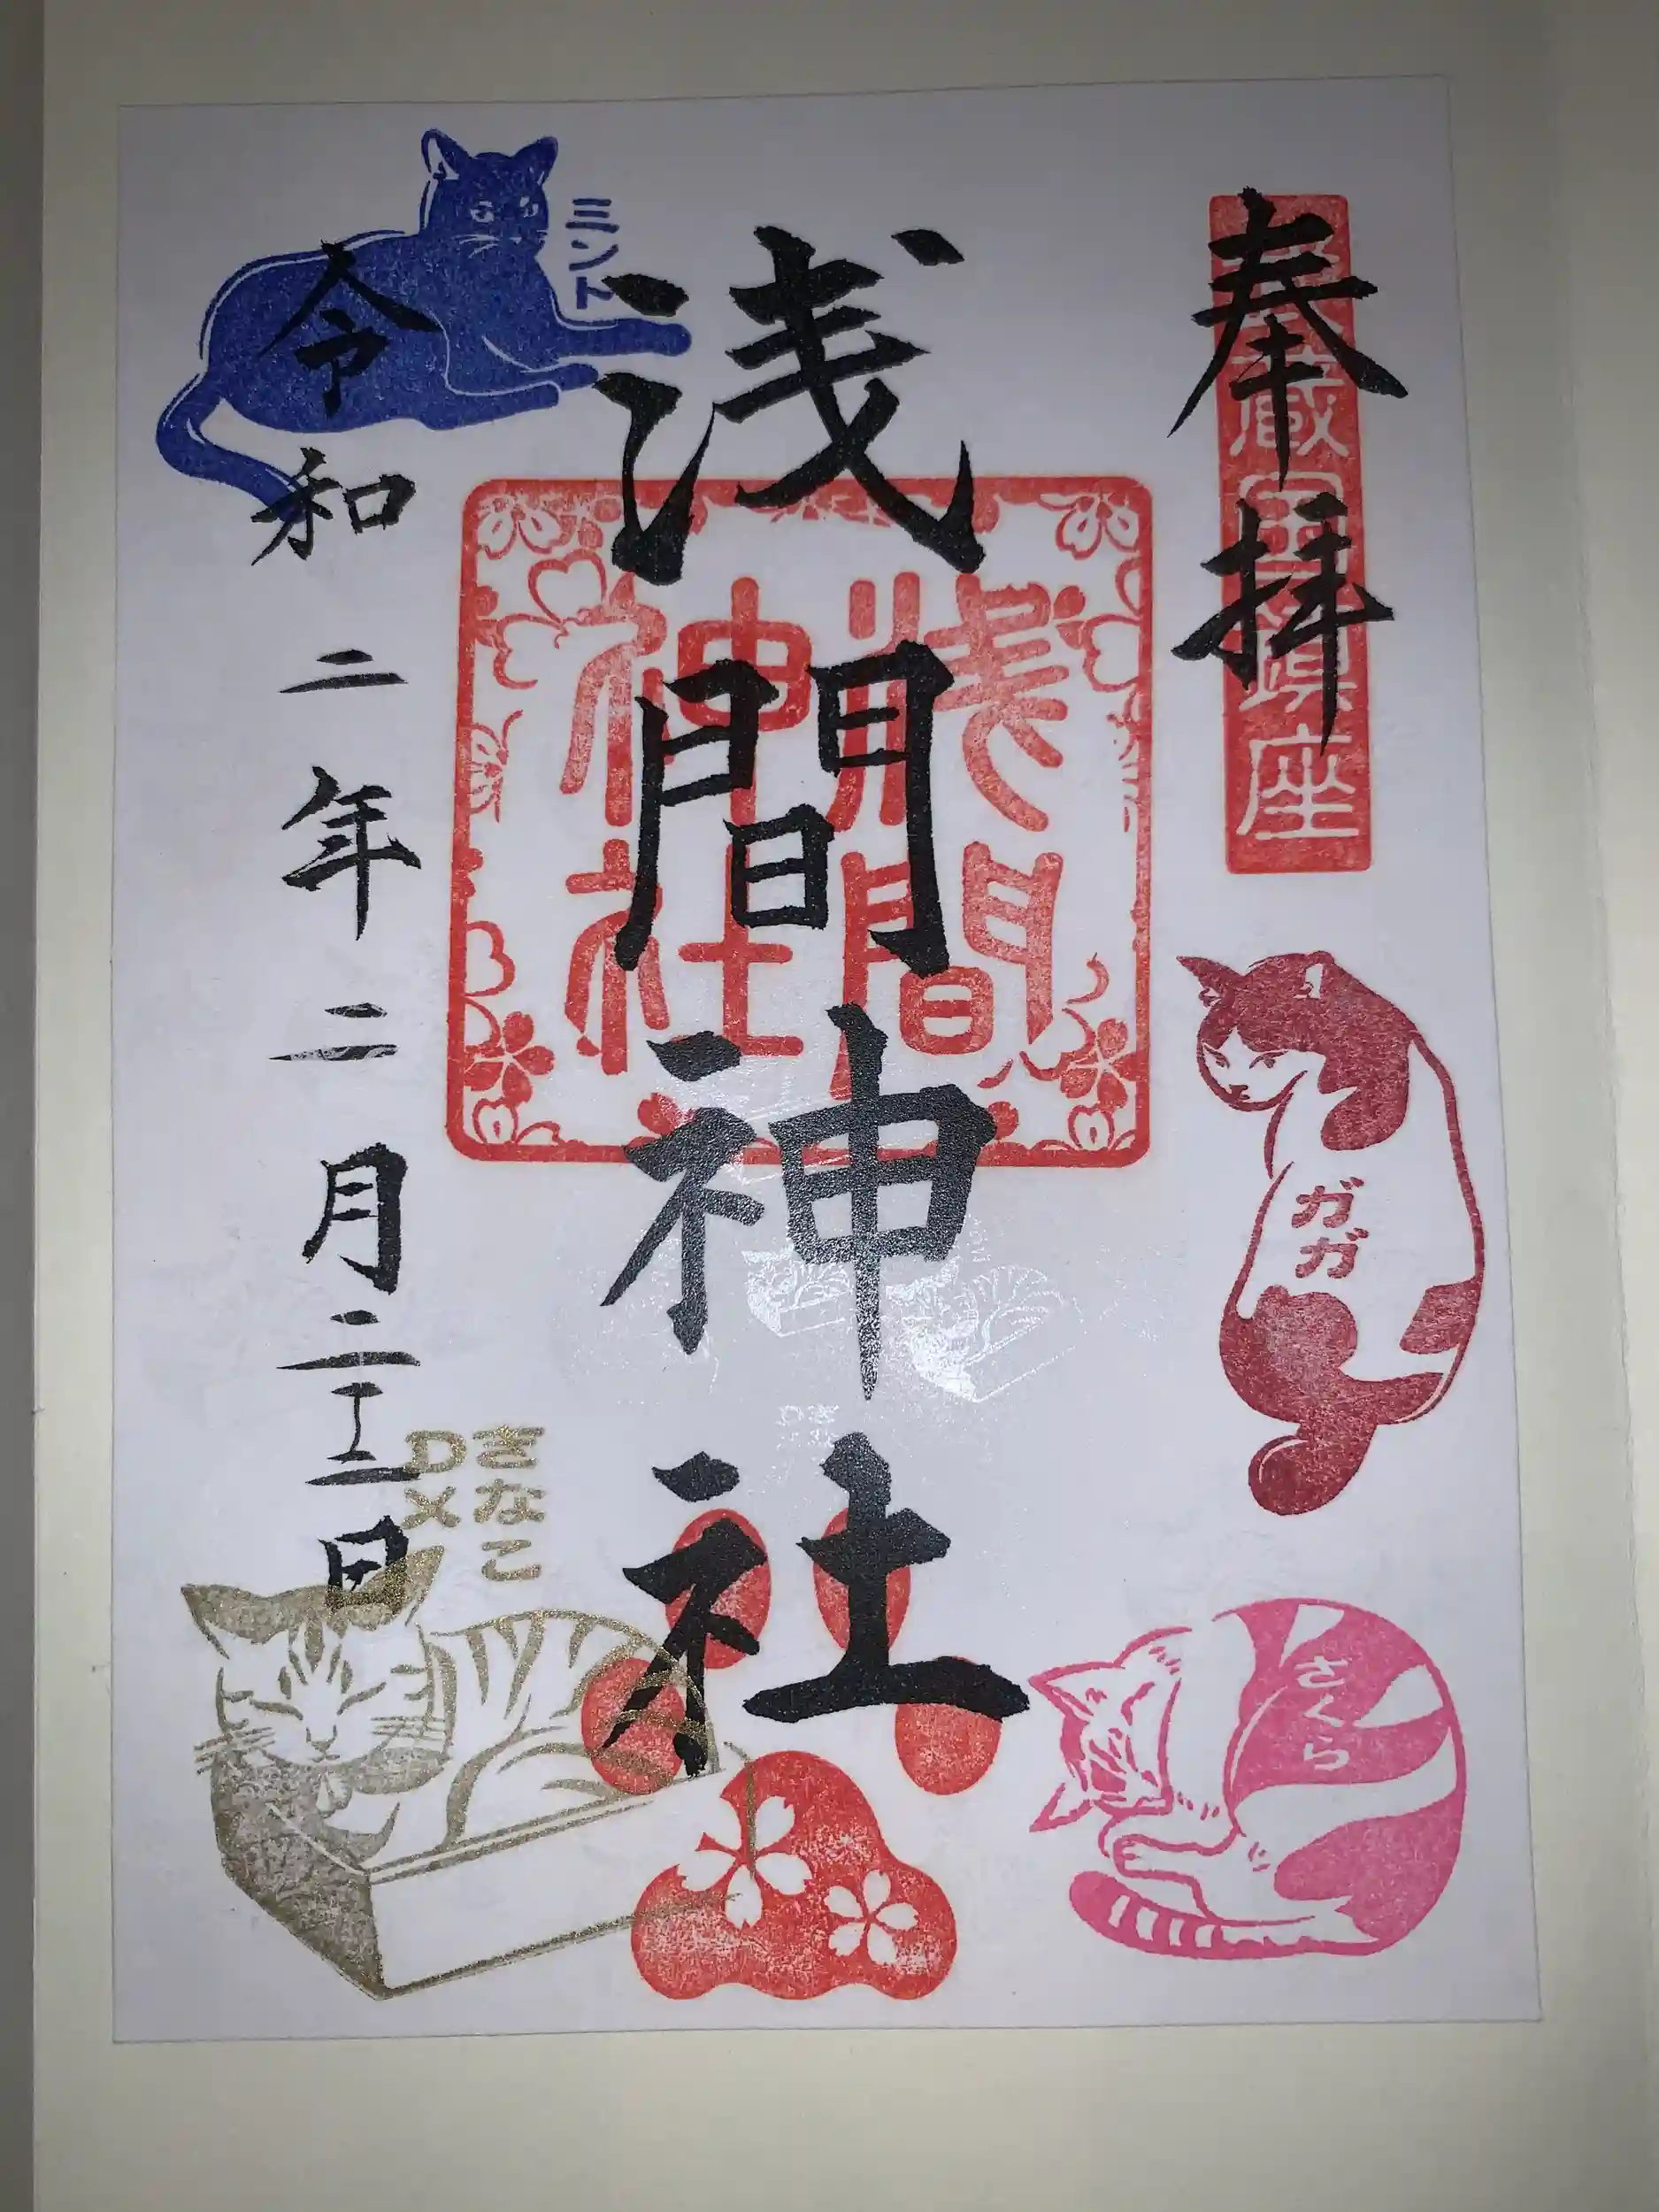 奉拝
蔵国鎮座
浅間神社
淺間
神社
令和二年二月二十二日
ミント
ガガ
さくら
きなこ
DX